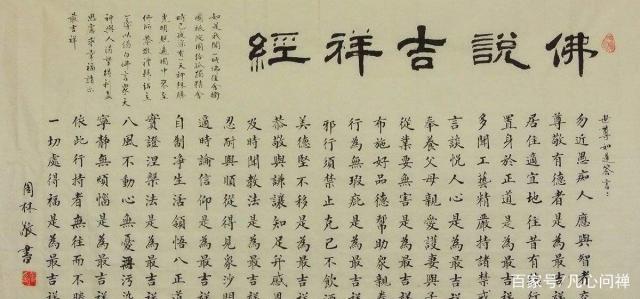 佛說吉祥經
如是我聞一時佛住舍衛
國祇陀園給孤獨精舍
時已夜深有一天神殊勝
光明照遍園中來至
佛所恭敬禮拜站立
一旁以偈白佛言眾天
神與人渴望得利益
思慮求幸福請示
最吉祥
世尊如是答言：
勿近愚痴人應與智者交
尊敬有德者是為最吉祥
居住適宜地往昔有行
置身於正道是為最吉祥
多聞工藝精嚴持諸禁戒
言談悅人心是為最吉祥
奉養父母親愛護妻與子
從業要無害是為最吉祥
布施好品德幫助眾親眷
行為無瑕疵是為最吉祥
邪行須禁止克己不飲酒
美德堅不移是為最吉祥
恭敬與謙讓知足並感恩
及時聞教法是為最吉祥
忍耐與順從得見眾沙門
適時論信仰是為最吉祥
自制淨生活領悟八正道
實證涅槃法是為最吉祥
八風不動心無憂無污染
寧靜無煩惱是為最吉祥
依此行持者無往而不勝
一切處得福是為最吉祥
周林敬書
百家号/凡心问禅